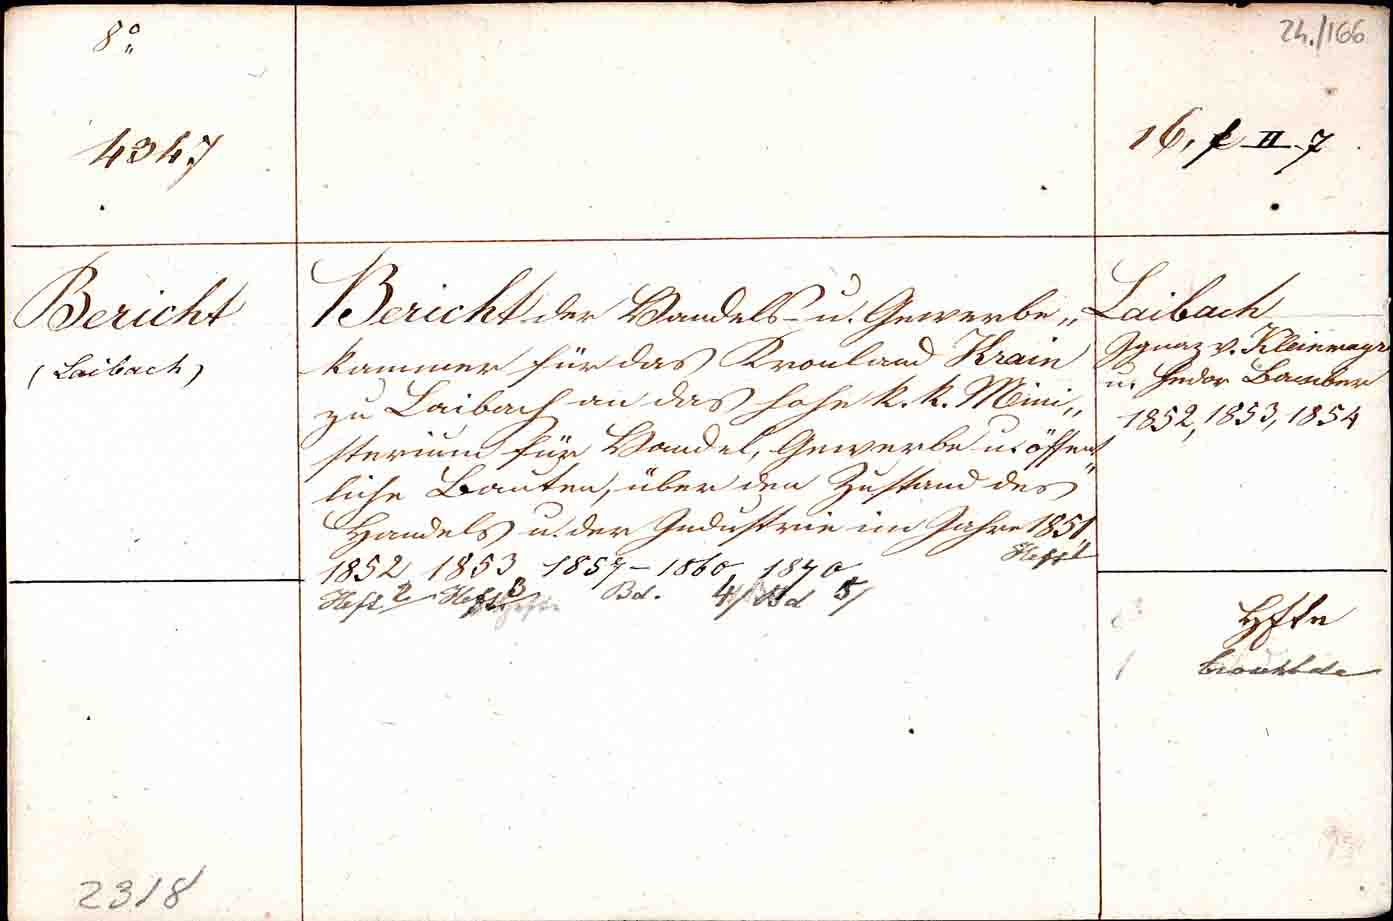 8°
24./166
4347
16, f II 7
Bericht
(Laibach)
Bericht der Handels- u. Gewerbe„
kammer für das Kronland Krain
zu Laibach an das hohe k. k. Mini„
sterium für Handel, Gewerbe u. öffent„
liche Bauten, über den Zustand des
Handels u. der Industrie im Jahre 1851,
Heft 1
1852 1853 1857–1860 1870
Heft 2 Heft 3 Bd. 4/ Bd 5/
Laibach
Ignaz v. Kleinmayr
u. Fedor Bamber
1852, 1853, 1854
Hfte
2318